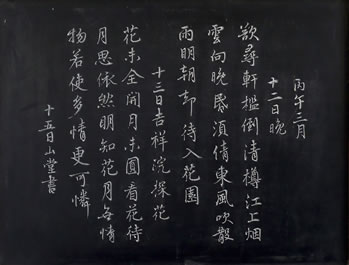 丙午三月
十二日晚
欲尋軒檻倒清樽江上烟
雲向晚昏須倩東風吹散
雨明朝却待入花園
十三日吉祥院探花
花未全開月未圓看花待
月思依然明知花月无情
物若使多情更可憐
十五日山堂書